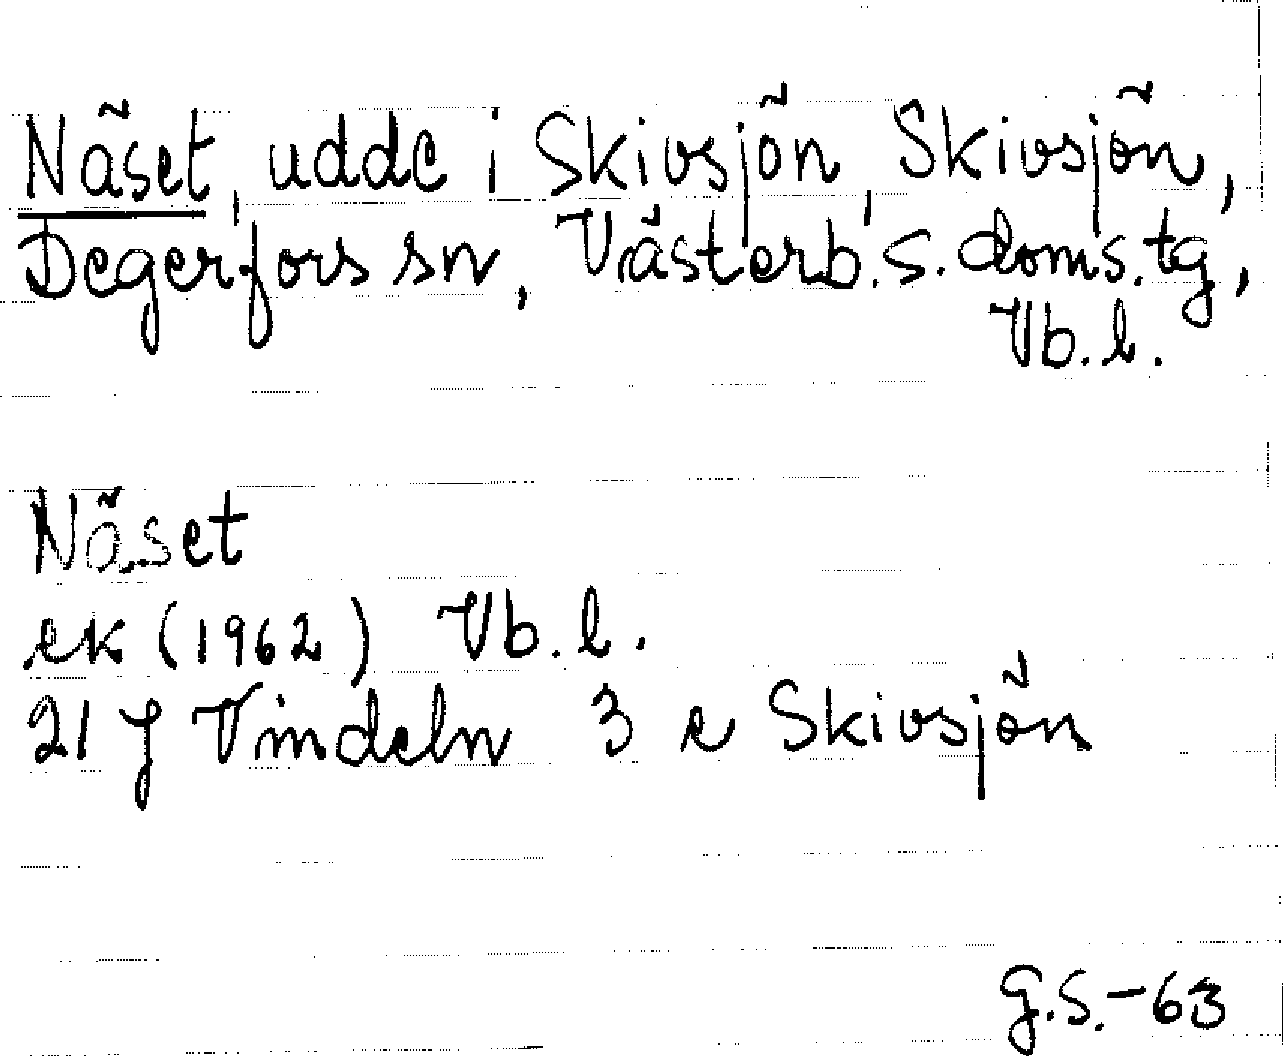 Näset, udde i Skivsjön, Skivsjön,
Degerfors sn, Västerb. s. doms. tg,
Vb. l.
Näset
ek (1962) Vb. l.
21 J Vindeln 3 e Skivsjön
G.S.-63